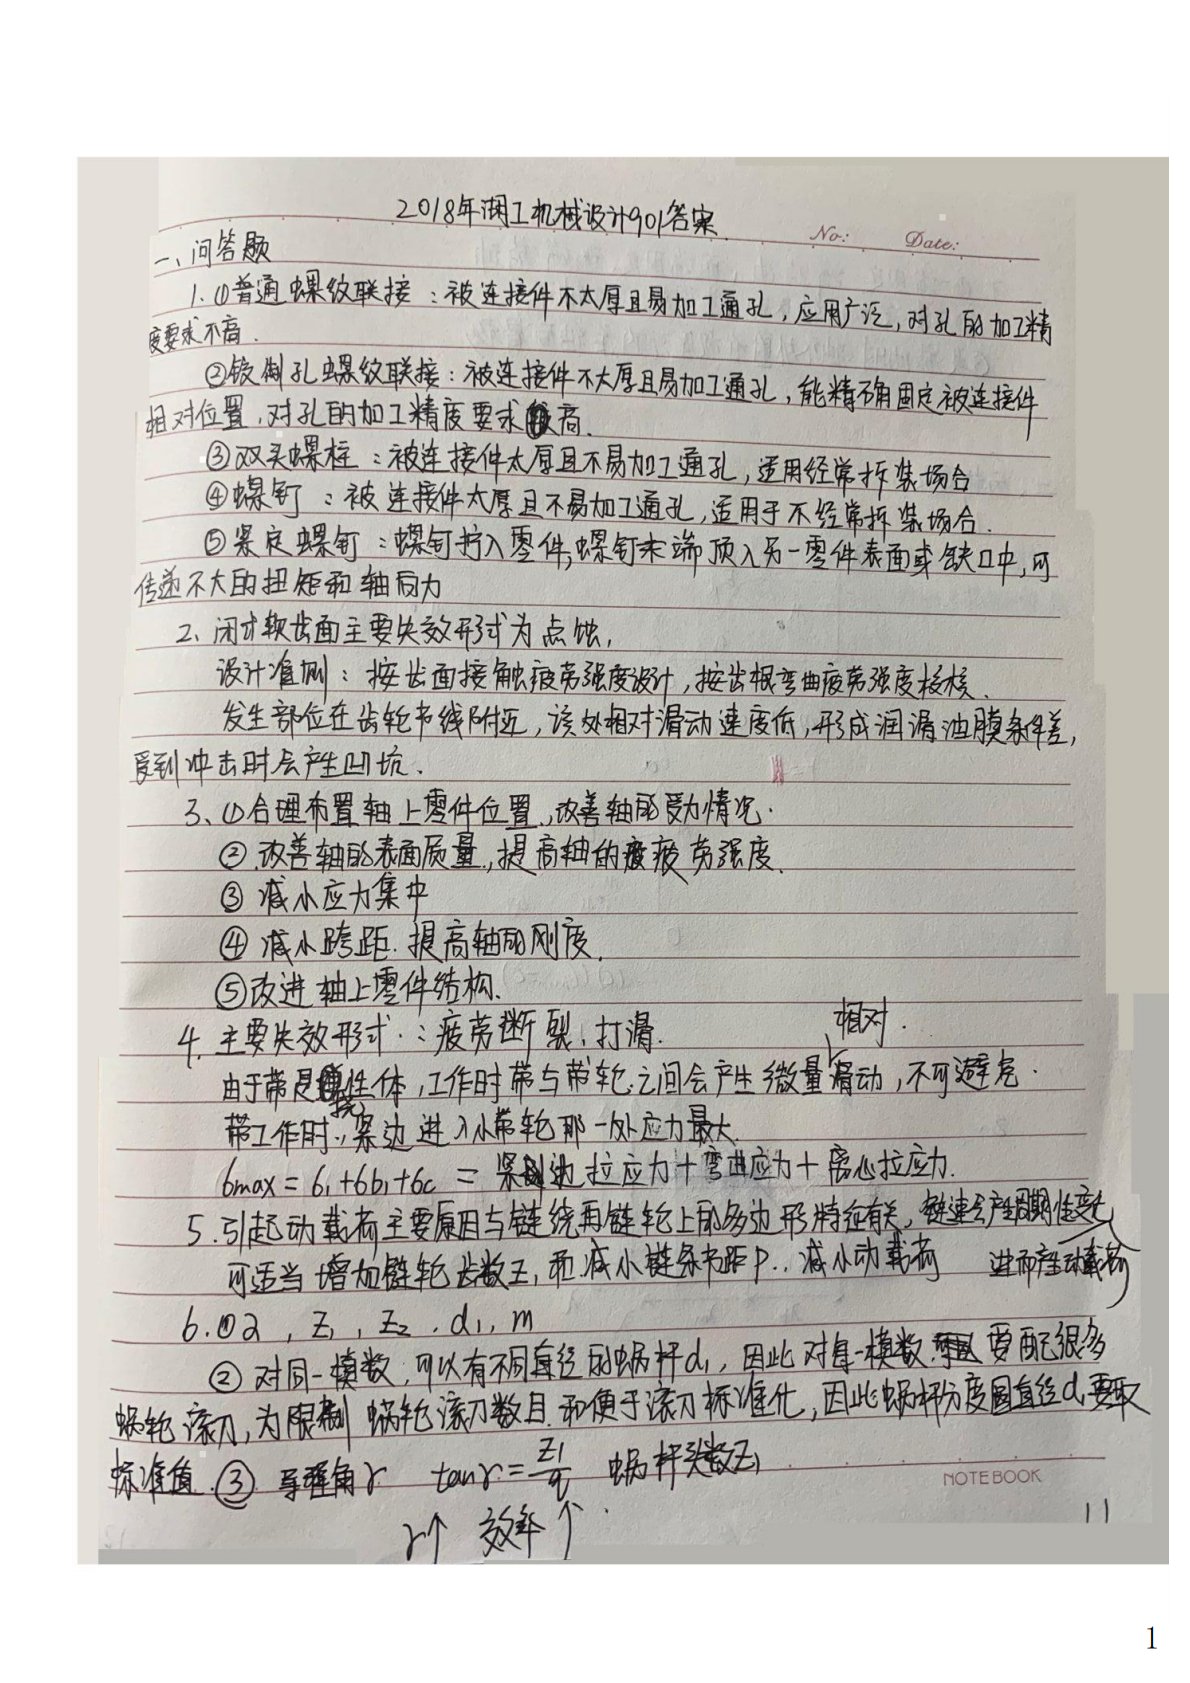 2018年湖工机械设计901答案
No:
Date:
一、问答题
1.①普通螺纹联接：被连接件不太厚且易加工通孔，应用广泛，对孔的加工精
度要求不高.
②铰制孔螺纹联接：被连接件不太厚且易加工通孔，能精确固定被连接件
相对位置，对孔的加工精度要求较高.
③双头螺柱：被连接件太厚且不易加工通孔，适用经常拆装场合
④螺钉：被连接件太厚且不易加工通孔，适用于不经常拆装场合.
⑤紧定螺钉：螺钉拧入零件，螺钉末端顶入另一零件表面或缺口中，可
传递不大的扭矩和轴向力
2、闭式软齿面主要失效形式为点蚀，
设计准则：按齿面接触疲劳强度设计，按齿根弯曲疲劳强度校核.
发生部位在齿轮节线附近，该处相对滑动速度低，形成润滑油膜条件差，
受到冲击时会产生凹坑.
3、①合理布置轴上零件位置，改善轴的受力情况.
②改善轴的表面质量，提高轴的疲劳强度.
③减小应力集中
④减小跨距.提高轴的刚度.
⑤改进轴上零件结构.
4.主要失效形式：疲劳断裂、打滑.
由于带是挠性体，工作时带与带轮之间会产生微量相对滑动，不可避免.
带工作时，紧边进入小带轮那一处应力最大.
6max=6₁+6b₁+6c=紧边拉应力+弯曲应力+离心拉应力.
5.引起动载荷主要原因与链绕再链轮上的多边形特征有关，链速会产生周期性变化
进而产生动载荷
可适当增加链轮齿数Z，减小链条节距P.减小动载荷
6.①a，Z₁，Z₂.d₁，m
②对同一模数，可以有不同直径的蜗杆d₁，因此对每一模数要配很多
蜗轮滚刀，为限制蜗轮滚刀数目和便于滚刀标准化，因此蜗杆分度圆直径d₁要取
标准值.③导程角γ tanγ=Z₁/q 蜗杆头数Z₁
γ↑ 效率↑
NOTEBOOK
11
1